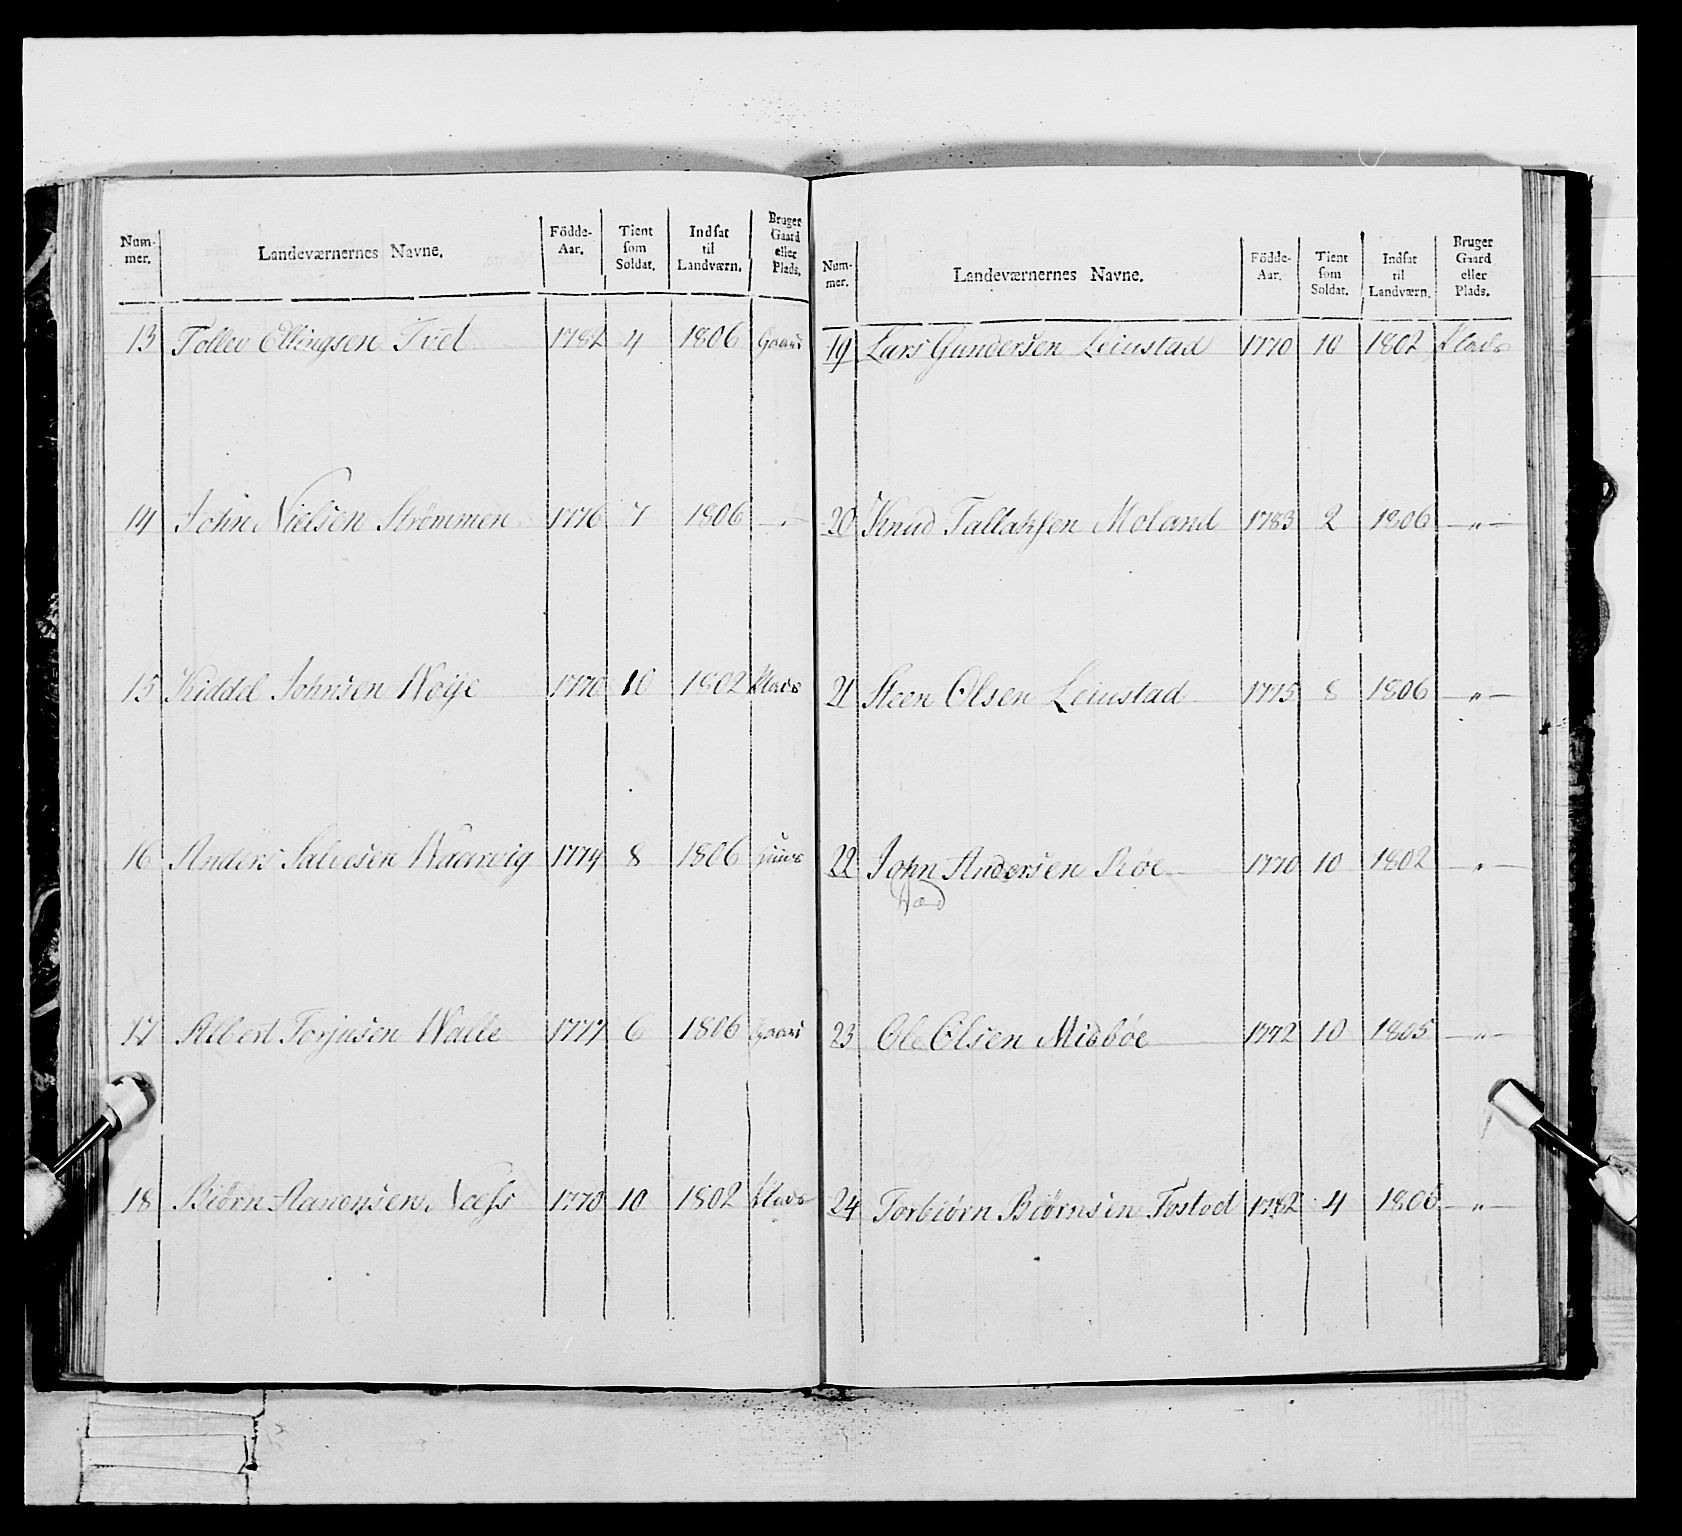 Num-
mer.
Landeværnernes Navne.
Födde-
Aar.
Tient
som
Soldat.
Indsat
til
Landværn.
Bruger
Gaard
eller
Plads.
13 Tollev Ellingsen Tvet 1782 4 1806 Gaard
14 John Nielsen Strømmen 1776 7 1806 —„—
15 Kiddel Johnsen Woije 1770 10 1802 Plads
16 Anders Salvesen Waarvig 1774 8 1806
17 Albert Torjusen Walle 1777 6 1806 Gaard
18 Biørn Aanonsen Næss 1770 10 1802 Plads
Num-
mer.
Landeværnernes Navne.
Födde-
Aar.
Tient
som
Soldat.
Indsat
til
Landværn.
Bruger
Gaard
eller
Plads.
19 Lars Gundersen Leiustad 1770 10 1802 Plads
20 Knud Tallaksen Moland 1783 2 1806 —„—
21 Steen Olsen Leiustad 1775 8 1806 —„—
22 John Andersen Røe 1770 10 1802 —„—
23 Ole Olsen Midbøe 1772 10 1805 —„—
24 Torbiørn Biørnsen Fostod 1782 4 1806 —„—